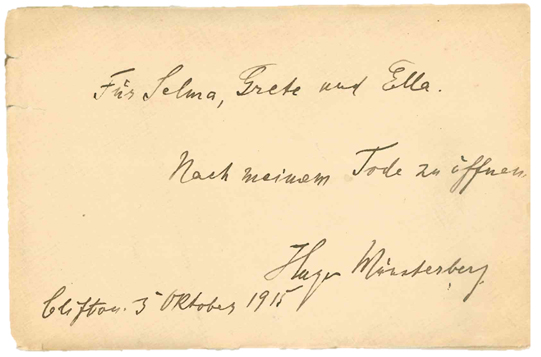 Für Selma, Grete und Ella.
Nach meinem Tode zu öffnen
Hugo Münsterberg
Clifton. 5 Oktober 1915